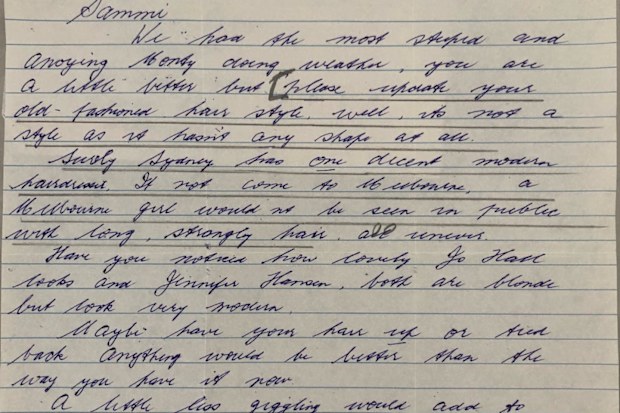 Sammi
We had the most stupid and
anoying Monty doing weather, you are
a little better but [please update your
old-fashioned hair style. well, its not a
style as it hasn't any shape at all.
Surely Sydney has one decent modern
hairdresser. If not come to Melbourne, a
Melbourne girl would not be seen in public
with long, strangly hair, all uneven.
Have you noticed how lovely Jo Hall
looks and Jennifer Hansen, both are blonde
but look very modern.
Maybe have your hair up or tied
back anything would be better than the
way you have it now
A little less giggling would add to